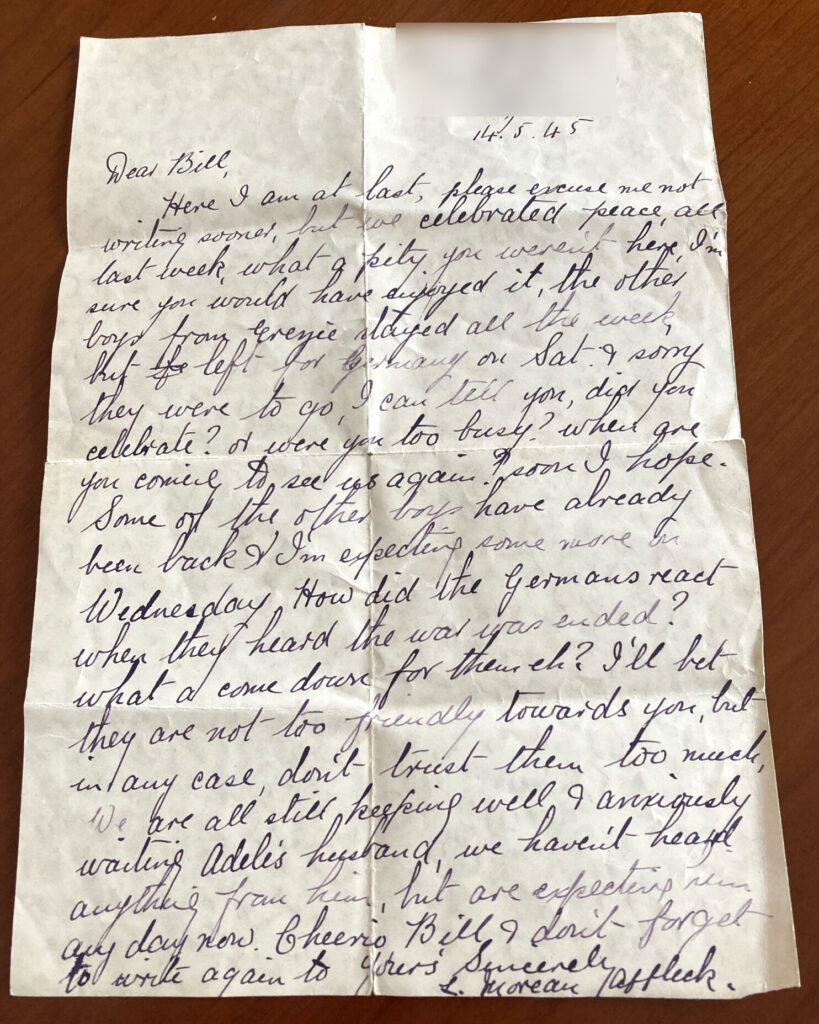 14.5.45
Dear Bill,
Here I am at last, please excuse me not
writing sooner, but we celebrated peace, all
last week, what a pity you weren't here, I'm
sure you would have enjoyed it, the other
boys from stayed all the week,
but left for Germany on Sat. & sorry
they were to go, I can tell you, did you
celebrate? or were you too busy? when are
you coming to see us again? soon I hope.
Some of the other boys have already
been back & I'm expecting some more on
Wednesday. How did the Germans react
when they heard the war was ended?
what a come down for them eh? I'll bet
they are not too friendly towards you, but
in any case, don't trust them too much,
We are all still keeping well & anxiously
waiting Adele's husband, we haven't heard
anything from him, but are expecting him
any day now. Cheerio Bill & don't forget
to write again to Yours Sincerely
L. Moreau Affleck.